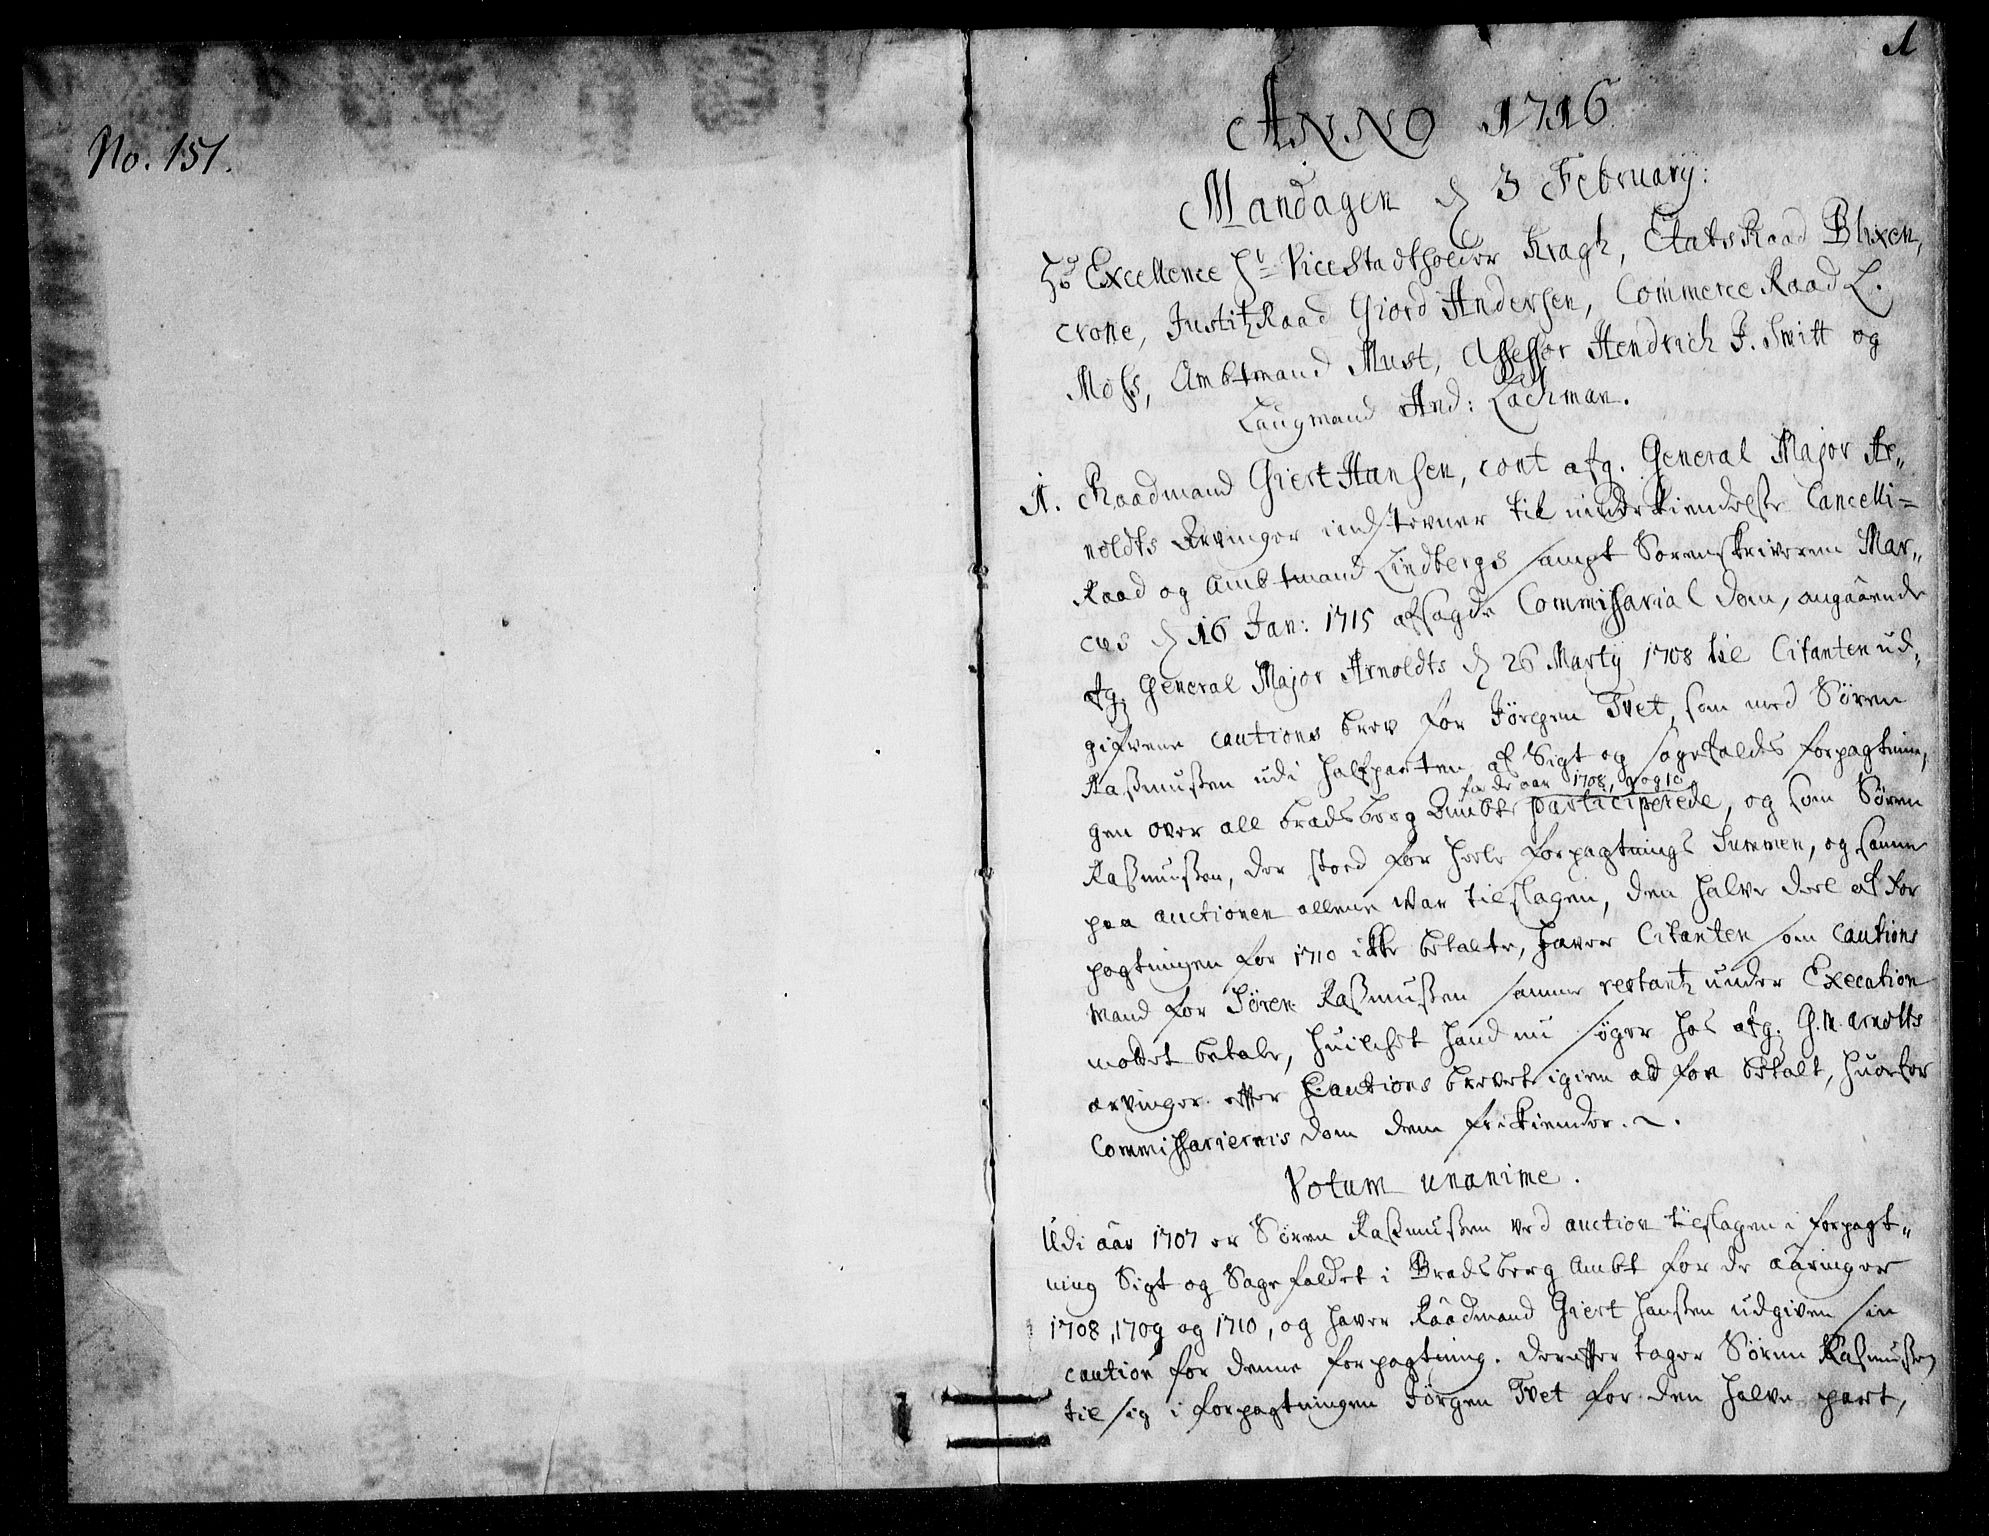 No. 151.
1
ANNO 1716
Mandagen d 3 February:
Hs Excellence Hr Vice Stadtholder Kragh, Etats Raad Blixen,
crone, Justitz Raad Giord Andersen, Commerce Raad L.
Moss, Ambtmand Must, Assessor Hendrich J. Smitt og
Laugmand And: Lachman.
1. Raadmand Giert Hansen, cont afg. General Major Ar„
noldts Arvinger indstevner til underkiendelse Cancelli=
Raad og Ambtmand Lindbergs sampt Sorenskriveren Mar„
cus d 16 Jan: 1715 afsagde Commissarial dom, angaaende
afg. General Major Arnoldts d 26 Marty 1708 til Citanten ud„
gifvene cautions brev for Jörgen Tvet, som med Sören
Rasmussen udi halfparten af Sigt og sagefalds forpagtnin„
for de aar 1708, 9 og 10
gen over all bradsberg Ambt participerede, og som Sören
Rasmussen, der stoed for heele forpagtnings Summen, og samme
paa auctionen allene var tilslagen, den halve deel af for
pagtningen for 1710 ikke betalte, haver Citanten som cautions
mand for Sören Rasmussen samme restantz under Execution
motet betale, huilchet hand nu söger hos afg. G. M. Arnolts
arvinger effter Cautions brevet igien at faae betalt, huorfor
Commissariernis dom dem frikiender.
Votum unanime.
Udi aar 1707 er Sören Rasmussen ved auction tilslagen i forpagt„
ning Sigt og Sagefaldet i Bradsberg Ambt for de aaringer
1708, 1709 og 1710, og haver Raadmand Giert Hansen udgiven sin
caution for denne forpagtning. Dereffter tager Sören Rasmussen
til sig i forpagtningen Jörgen Tvet for den halve part,